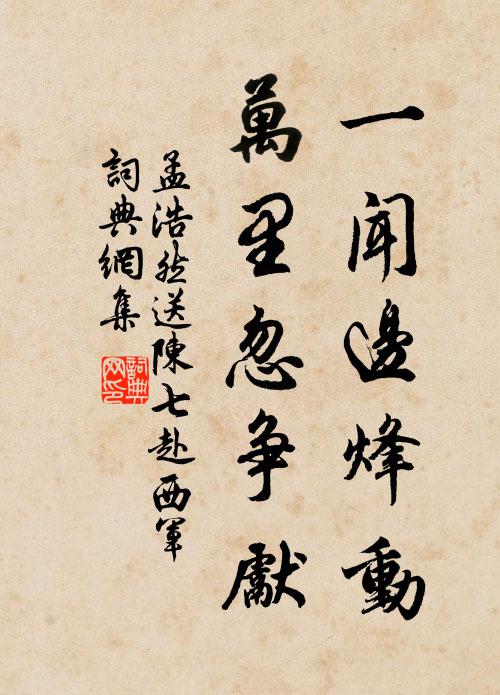 一聞邊烽動
萬里忽爭獻
孟浩然送陳七赴西軍
詞典網集
詞典网印